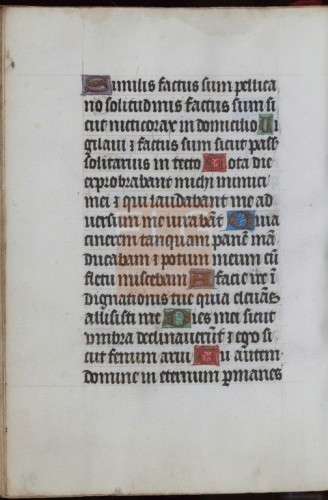 Similis factus sum pellica
no solitudinis factus sum si
cut nicticorax in domicilio Ui
gilaui ⁊ factus sum sicut pass̄
solitarius in tecto Tota die
exprobrabant michi inimici
mei ⁊ qui laudabant me ad
uersum me iurabāt Quia
cinerem tanquam panē mā
ducabam ⁊ potum meum cū
fletu miscebam A facie ire ī
dignationis tue quia eleuās
allisisti me Dies mei sicut
vmbra declinauerūt ⁊ ego si
cut fenum arui Tu autem
domine in eternum permanes